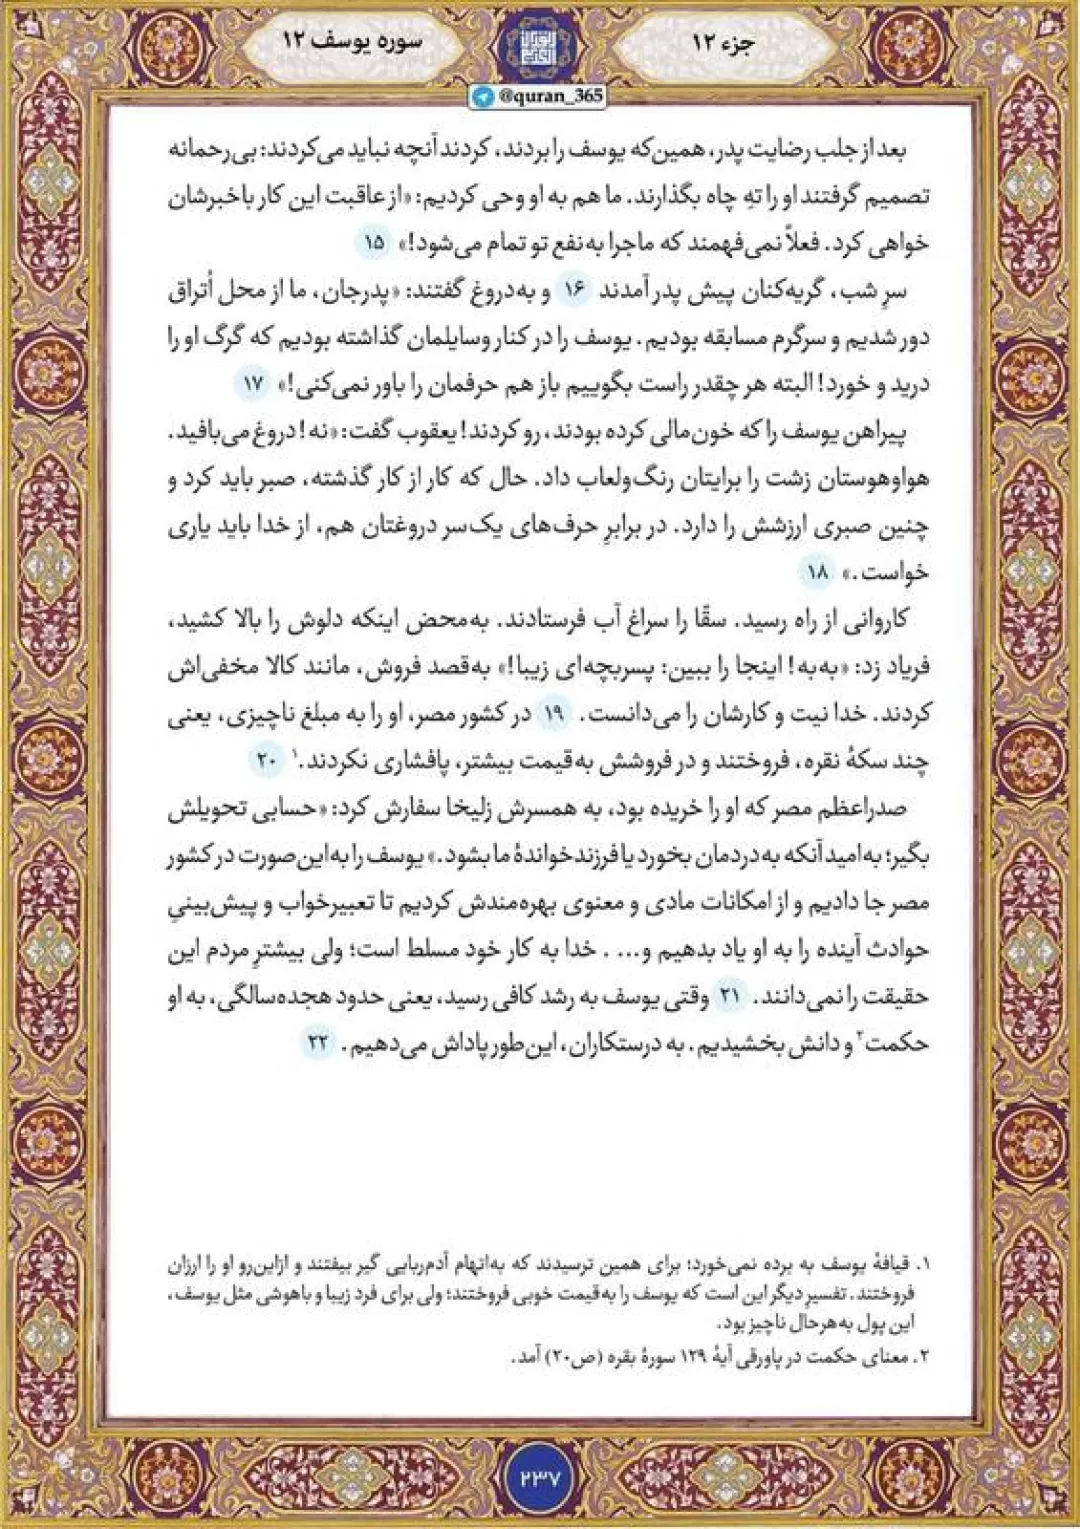 جزء ۱۲
سوره یوسف ۱۲
@quran_365
بعد از جلب رضایت پدر، همین‌که یوسف را بردند، کردند آنچه نباید می‌کردند: بی‌رحمانه
تصمیم گرفتند او را تهِ چاه بگذارند. ما هم به او وحی کردیم: «از عاقبت این کار باخبرشان
خواهی کرد. فعلاً نمی‌فهمند که ماجرا به‌نفع تو تمام می‌شود!» ۱۵
سرِ شب، گریه‌کنان پیش پدر آمدند ۱۶ و به‌دروغ گفتند: «پدرجان، ما از محل اُتراق
دور شدیم و سرگرم مسابقه بودیم. یوسف را در کنار وسایلمان گذاشته بودیم که گرگ او را
درید و خورد! البته هر چقدر راست بگوییم باز هم حرفمان را باور نمی‌کنی!» ۱۷
پیراهن یوسف را که خون‌مالی کرده بودند، رو کردند! یعقوب گفت: «نه! دروغ می‌بافید.
هواوهوستان زشت را برایتان رنگ‌ولعاب داد. حال که کار از کار گذشته، صبر باید کرد و
چنین صبری ارزشش را دارد. در برابرِ حرف‌های یک‌سر دروغتان هم، از خدا باید یاری
خواست.» ۱۸
کاروانی از راه رسید. سقّا را سراغ آب فرستادند. به‌محض اینکه دلوش را بالا کشید،
فریاد زد: «به‌به! اینجا را ببین: پسربچه‌ای زیبا!» به‌قصد فروش، مانند کالا مخفی‌اش
کردند. خدا نیت و کارشان را می‌دانست. ۱۹ در کشور مصر، او را به مبلغ ناچیزی، یعنی
چند سکهٔ نقره، فروختند و در فروشش به‌قیمت بیشتر، پافشاری نکردند.۱ ۲۰
صدراعظم مصر که او را خریده بود، به همسرش زلیخا سفارش کرد: «حسابی تحویلش
بگیر؛ به‌امید آنکه به‌دردمان بخورد یا فرزندخواندهٔ ما بشود.» یوسف را به‌این‌صورت در کشور
مصر جا دادیم و از امکانات مادی و معنوی بهره‌مندش کردیم تا تعبیرخواب و پیش‌بینیِ
حوادث آینده را به او یاد بدهیم و... . خدا به کار خود مسلط است؛ ولی بیشترِ مردم این
حقیقت را نمی‌دانند. ۲۱ وقتی یوسف به رشد کافی رسید، یعنی حدود هجده‌سالگی، به او
حکمت۲ و دانش بخشیدیم. به درستکاران، این‌طور پاداش می‌دهیم. ۲۲
۱. قیافهٔ یوسف به برده نمی‌خورد؛ برای همین ترسیدند که به‌اتهام آدم‌ربایی گیر بیفتند و ازاین‌رو او را ارزان
فروختند. تفسیرِ دیگر این است که یوسف را به‌قیمت خوبی فروختند؛ ولی برای فرد زیبا و باهوشی مثل یوسف،
این پول به‌هرحال ناچیز بود.
۲. معنای حکمت در پاورقی آیهٔ ۱۲۹ سورهٔ بقره (ص۲۰) آمد.
۲۳۷